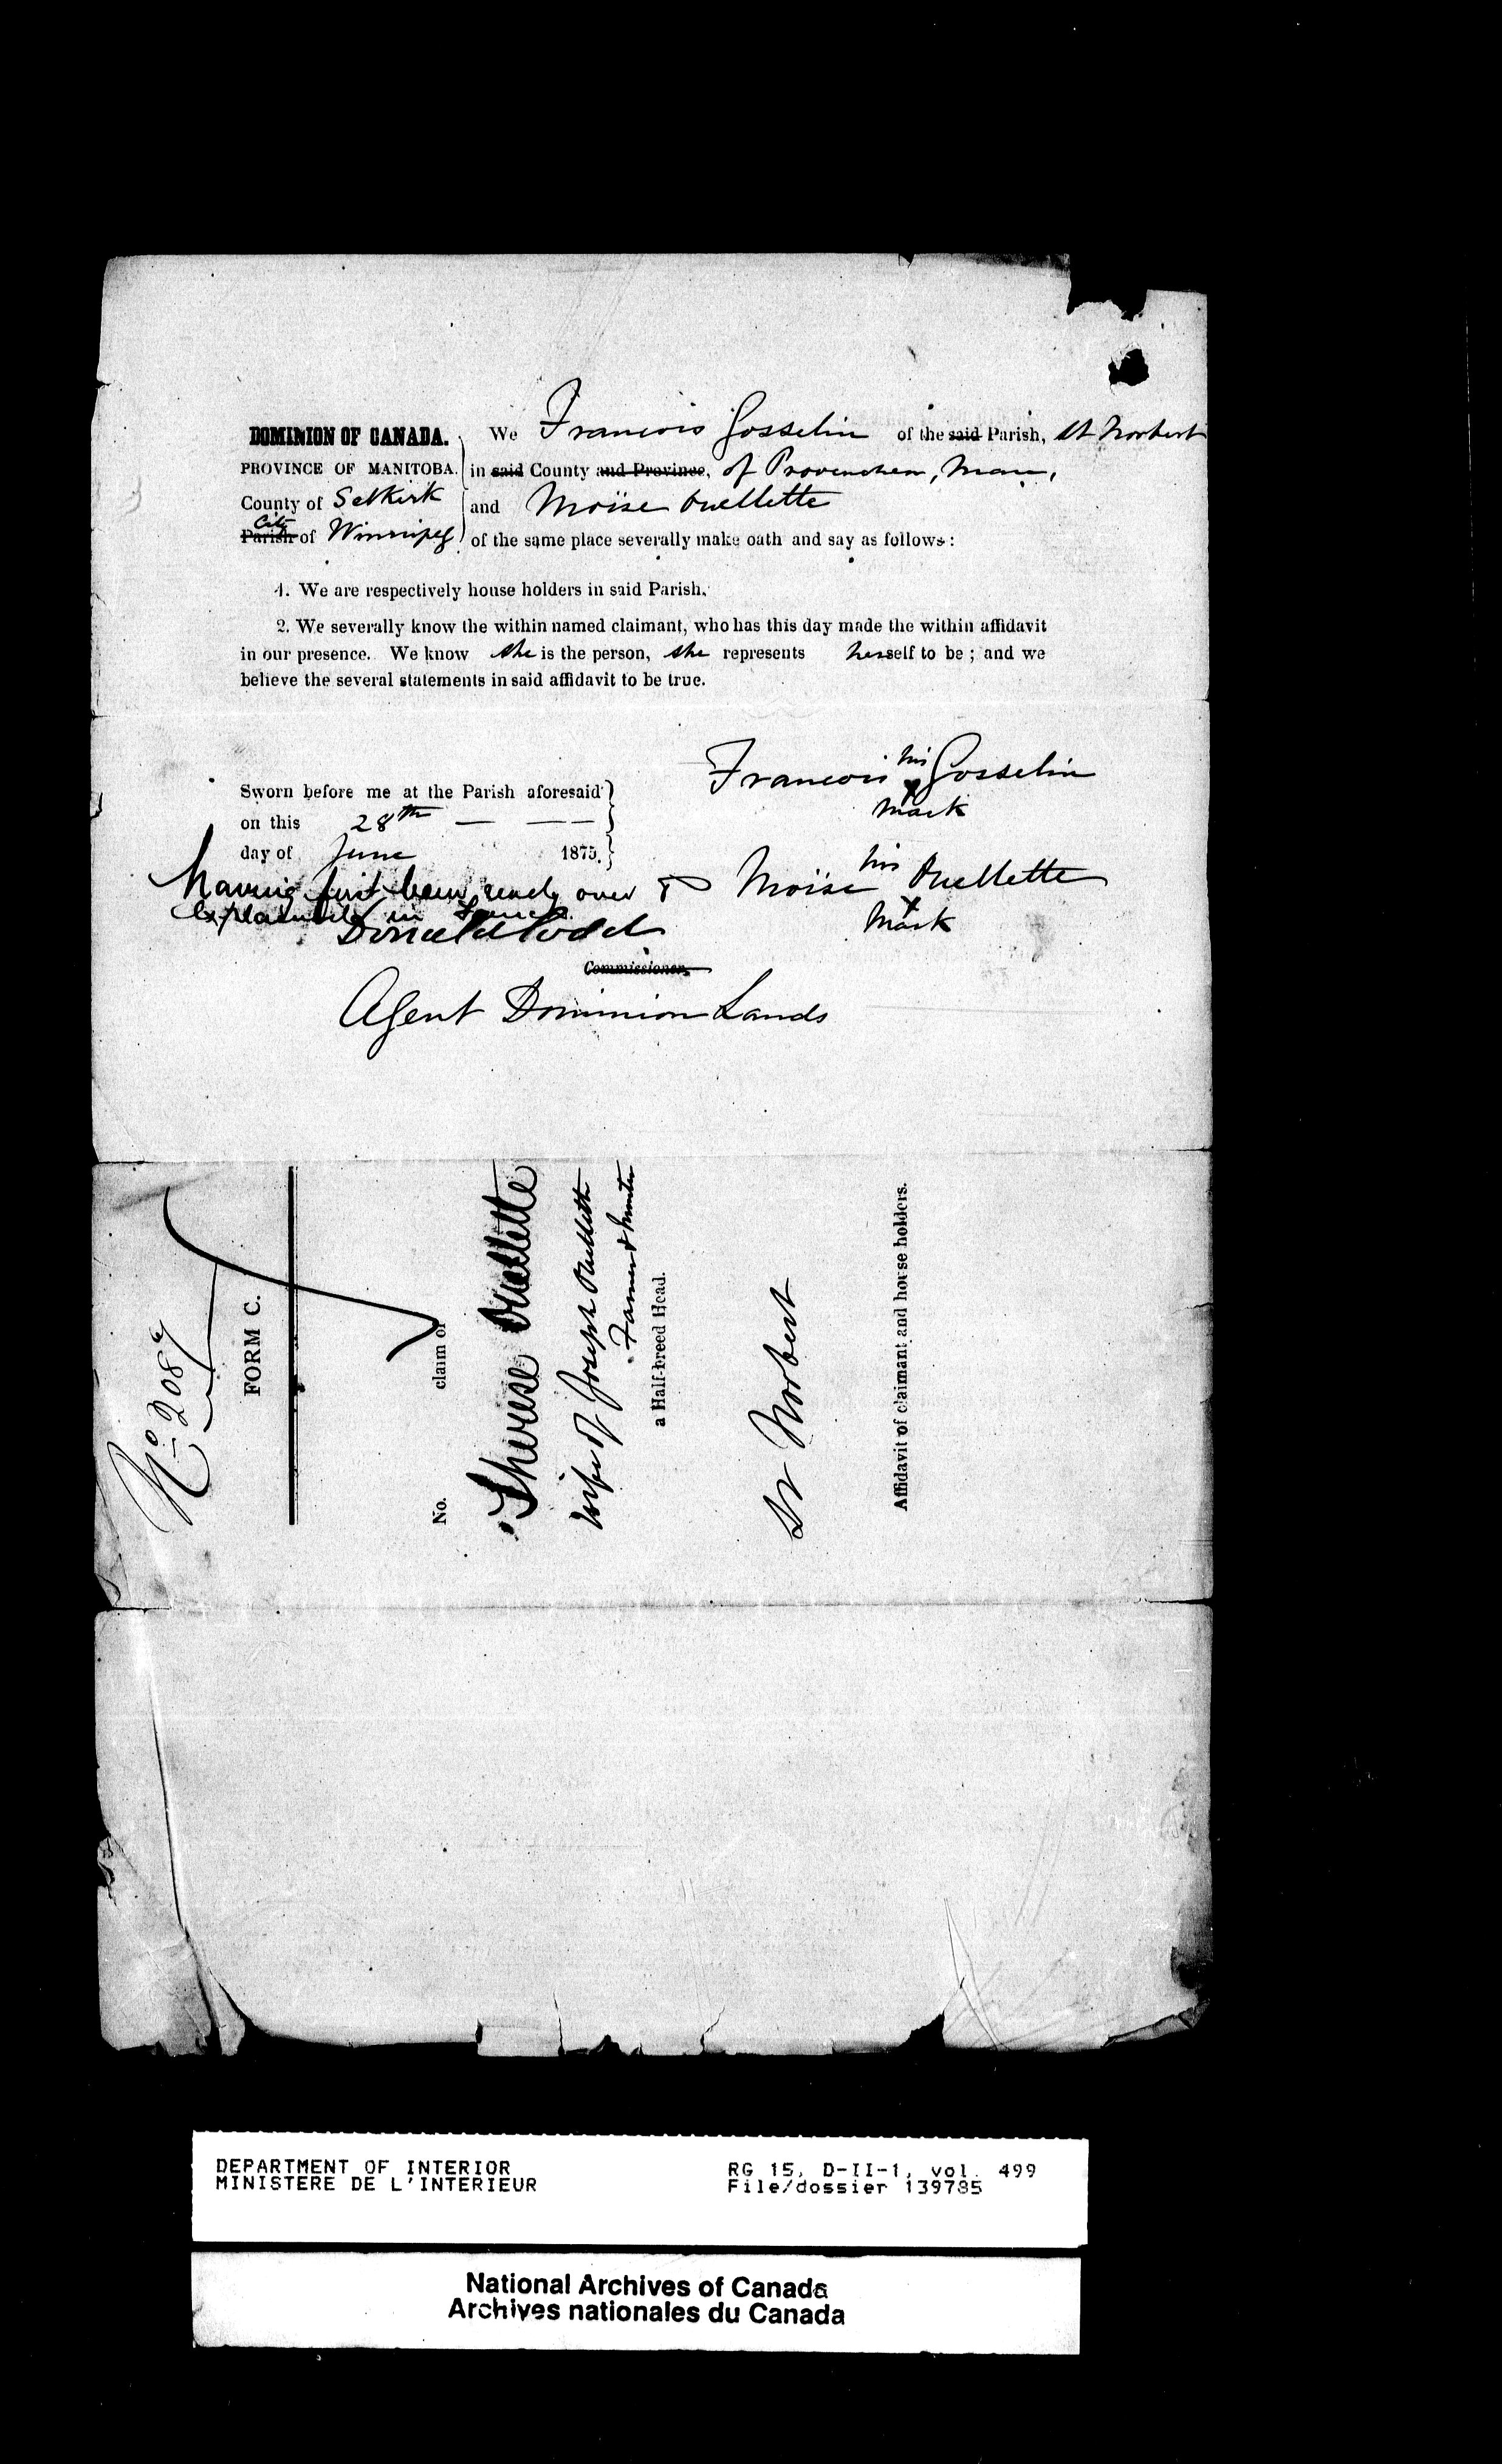 DOMINION OF CANADA.
PROVINCE OF MANITOBA.
County of Selkirk
City
Parish of Winnipeg
We Francois Gosselin of the said Parish, St Norbert
in said County and Province, of Provencher, Man,
and Moïse Ouellette
of the same place severally make oath and say as follows:
1. We are respectively house holders in said Parish.
2. We severally know the within named claimant, who has this day made the within affidavit
in our presence. We know she is the person, she represents herself to be; and we
believe the several statements in said affidavit to be true.
Sworn before me at the Parish aforesaid
on this 28th
day of June 1875.
having first been read over &
explained in French
Donald Codd
Commissioner.
Agent Dominion Lands
Francois his Gosselin
X
mark
Moïse his Ouellette
X
mark
No 208
FORM C.
No. claim of
Therese Ouellette
wife of Joseph Ouellette
Farmer & hunter
a Half-breed Head.
St Norbert
Affidavit of claimant and house holders.
DEPARTMENT OF INTERIOR
MINISTERE DE L'INTERIEUR
RG 15, D-II-1, vol. 499
File/dossier 139785
National Archives of Canada
Archives nationales du Canada